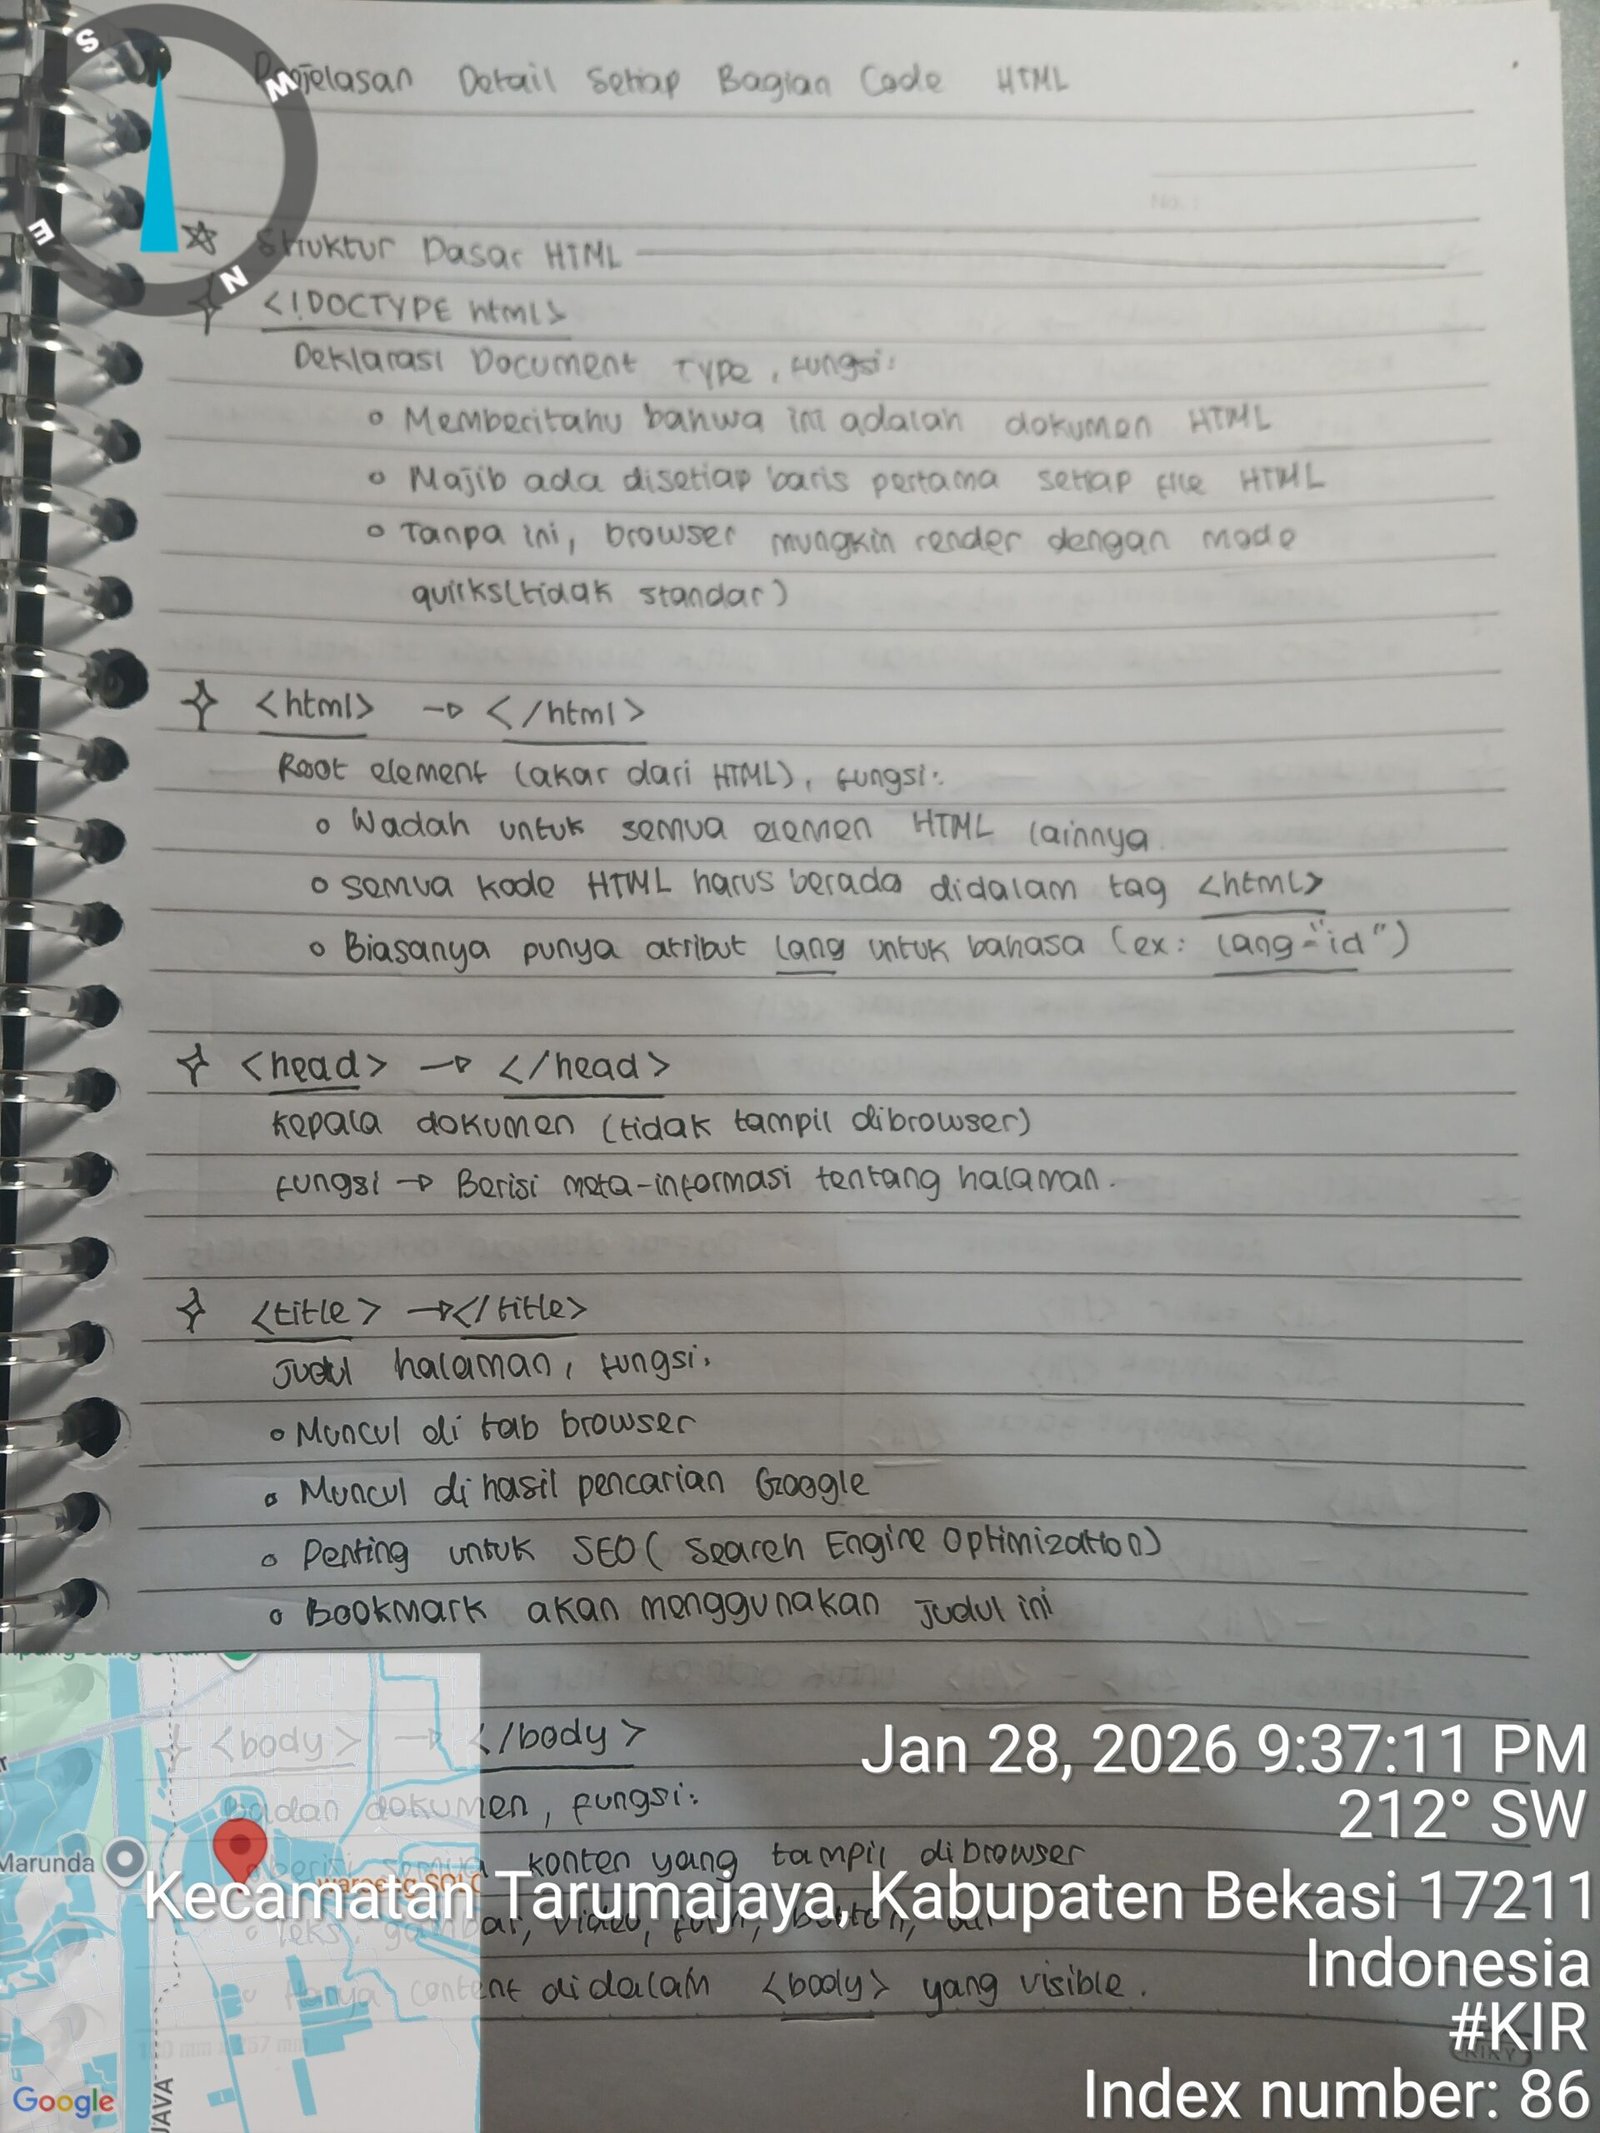 Penjelasan Detail Setiap Bagian Code HTML
Struktur Dasar HTML
<!DOCTYPE html>
Deklarasi Document Type, fungsi:
Memberitahu bahwa ini adalah dokumen HTML
Majib ada disetiap baris pertama setiap file HTML
Tanpa ini, browser mungkin render dengan mode
quirks(tidak standar)
<html> → </html>
Root element (akar dari HTML), fungsi:
Wadah untuk semua elemen HTML lainnya
semua kode HTML harus berada didalam tag <html>
Biasanya punya atribut lang untuk bahasa (ex: lang="id")
<head> → </head>
kepala dokumen (tidak tampil dibrowser)
fungsi → Berisi meta-informasi tentang halaman.
<title> → </title>
Judul halaman, fungsi:
Muncul di tab browser
Muncul di hasil pencarian Google
Penting untuk SEO( Search Engine Optimization)
Bookmark akan menggunakan judul ini
<body> → </body>
badan dokumen, fungsi:
berisi semua konten yang tampil dibrowser
Teks, gambar, video, form, button, dll
Hanya content didalam <body> yang visible.
S
W
E
N
Marunda
Google
JAVA
Jan 28, 2026 9:37:11 PM
212° SW
Kecamatan Tarumajaya, Kabupaten Bekasi 17211
Indonesia
#KIR
Index number: 86